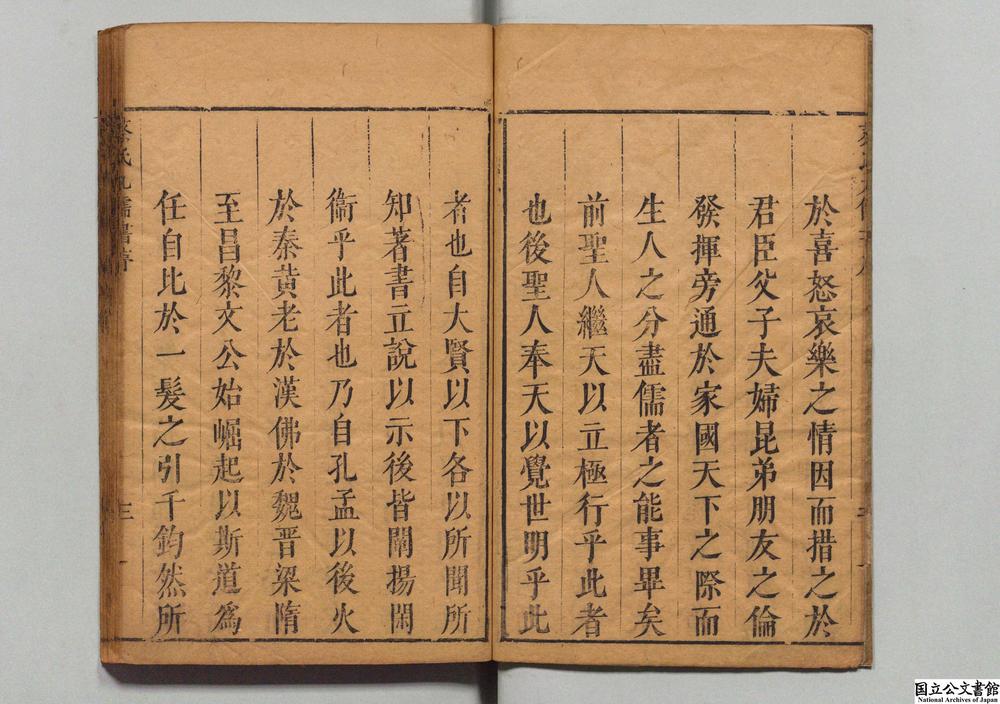 於喜怒哀樂之情因而措之於
君臣父子夫婦昆弟朋友之倫
發揮旁通於家國天下之際而
生人之分盡儒者之能事畢矣
前聖人繼天以立極行乎此者
也後聖人奉天以覺世明乎此
者也自大賢以下各以所聞所
知著書立說以示後皆闡揚閑
衞乎此者也乃自孔孟以後火
於秦黄老於漢佛於魏晋梁隋
至昌黎文公始崛起以斯道爲
任自比於一髮之引千鈞然所
蔡氏九儒書序
三
国立公文書館
National Archives of Japan